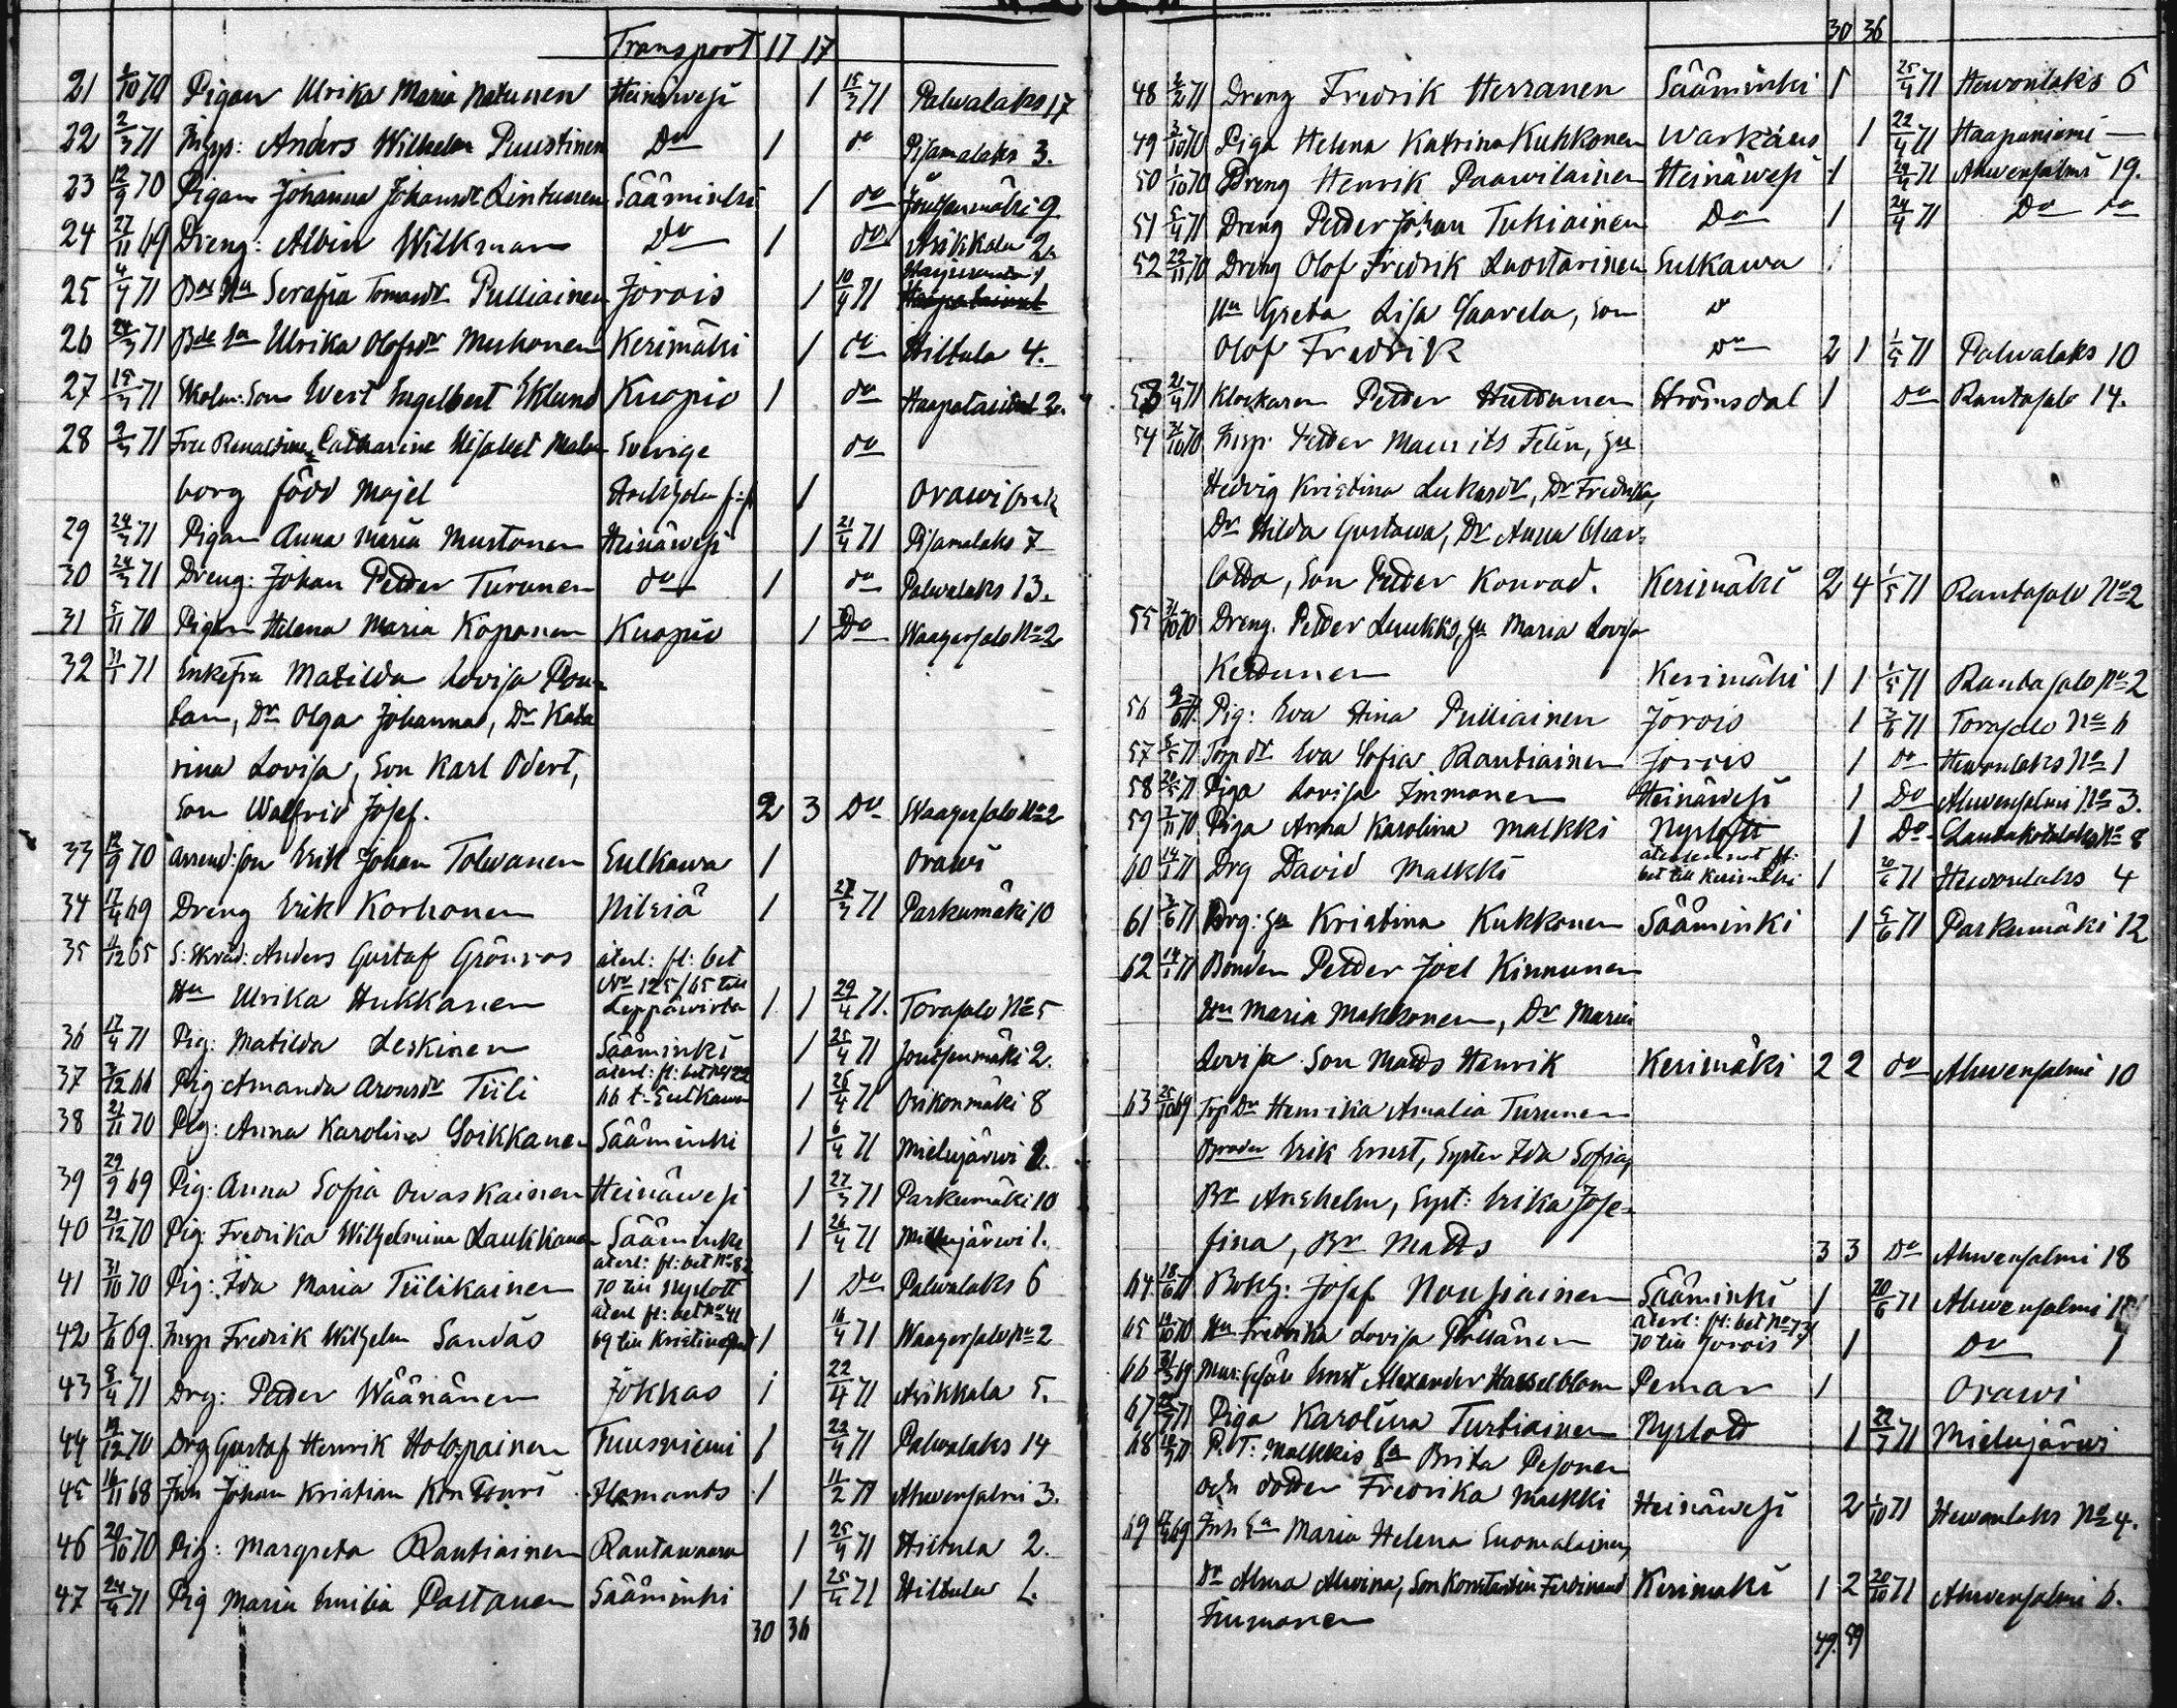 Transport 17 17
21 1/10 70 Pigan Ulrika Maria Natunen Heinäwesi 1 15/3 71 Palwalaks 17
22 2/3 71 Insp: Anders Wilhelm Puustinen Do 1 do Pijamalaks 3.
23 12/9 70 Pigan Johanna Johansdr Lintunen Sääminki 1 do Joutsenmäki 9
24 27/11 69 Dreng: Albin Wilkman Do 1 do Asikkala 2.
25 4/4 71 Serafia Tomasdr Pulliainen Jorois 1 10/4 71
26 24/3 71 Ulrika Olofsdr Muhonen Kerimäki 1 do Hiltula 4.
27 15/3 71 Skolm: Son Evert Engelbert Eklund Kuopio 1 do Haapataival 2.
28 9/3 71 Fru Catharine Elisabet Malm Sverige do
borg född Majel 1 Orawi
29 24/3 71 Pigan Anna Maria Mustonen Heinäwesi 1 21/4 71 Pijamalaks 7
30 24/3 71 Dreng: Johan Petter Turunen do 1 do Palwalaks 13.
31 5/11 70 Pigan Helena Maria Koponen Kuopio 1 Do Waagersalo No 2
32 31/1 71 Enkefru Matilda Lovisa Pon-
tan, Dr Olga Johanna, Dr Kata
rina Lovisa, Son Karl Odert,
Son Walfrid Josef. 2 3 Do Waagersalo No 2
33 12/9 70 Arrend: son Erik Johan Tolwanen Sulkawa 1 Orawi
34 17/4 69 Dreng Erik Korhonen Nilsiä 1 27/3 71 Parkumäki 10
35 11/12 65 S: Skräd: Anders Gustaf Grönroos återl: fl: bet
Hu Ulrika Hukkanen No 125/65 till Leppäwirta 1 1 29/4 71. Torasalo No 5
36 17/4 71 Pig: Matilda Leskinen Sääminki 1 25/4 71 Joutsenmäki 2.
37 3/12 66 Pig Amanda Aronsdr Tiili återl: fl: bet No 122 66 t. Sulkawa 1 26/4 71 Orikonmäki 8
38 21/11 70 Pig: Anna Karolina Loikkanen Sääminki 1 6/4 71 Mielujärwi
39 29/9 69 Pig: Anna Sofia Owaskainen Heinäwesi 1 27/3 71 Parkumäki 10
40 21/12 70 Pig: Fredrika Wilhelmina Laukkanen Sääminki 1 26/4 71 Mielujärwi 1.
41 31/10 70 Pig: Ida Maria Tiilikainen återl: fl: bet No 82 70 till Nyslott 1 Do Palwalaks 6
42 7/6 69. Insp Fredrik Wilhelm Sandås återl fl: bet No 41 69 till Kristinestad 1 16/4 71 Waagersalo No 2
43 8/4 71 Drg: Petter Wäänänen Jokkas 1 22/4 71 Asikkala 5.
44 19/12 70 Drg Gustaf Henrik Holopainen Tuusniemi 1 22/4 71 Palwalaks 14
45 16/11 68 Inh Johan Kristian Kontturi Ilomants 1 11/2 71 Ahwensalmi 3.
46 20/10 70 Pig: Margreta Rautiainen Rautawaara 1 25/4 71 Hiltula 2.
47 24/4 71 Pig Maria Emilia Partanen Sääminki 1 25/4 71 Hiltula 1.
30 36
30 36
48 2/2 71 Dreng Fredrik Herranen Sääminki 1 25/4 71 Hewonlaks 6
49 3/10 70 Piga Helena Katrina Kuhkonen Warkaus 1 22/4 71 Haapaniemi —
50 1/10 70 Dreng Henrik Paawilainen Heinäwesi 1 24/4 71 Ahwensalmi 19.
51 5/4 71 Dreng Petter Johan Tukiainen Do 1 24/4 71 Do do
52 22/11 70 Dreng Olof Fredrik Luostarinen Sulkawa
Hu Greta Lisa Saarela, Son
Olof Fredrik do 2 1 1/5 71 Palwalaks 10
53 21/4 71 Klockaren Petter Huttunen Strömsdal 1 Do Rantasalo 14.
54 31/10 70 Insp. Petter Maurits Felén, Hu
Hedvig Kristina Lukasdr, Dr Fredrika,
Dr Hilda Gustava, Dr Anna Char-
lotta, Son Petter Konrad. Kerimäki 2 4 1/5 71 Rantasalo No 2
55 31/10 70 Dreng. Petter Luukko, Hu Maria Lovisa
Kettunen Kerimäki 1 1 1/5 71 Rantasalo No 2
56 Pig: Eva Stina Pulliainen Jorois 1 3/6 71 Torasalo No 6
57 5/5 71 Torp dr Eva Sofia Rautiainen Jorois 1 do Hewonlaks No 1
58 20/5 71 Piga Lovisa Immonen Heinäwesi 1 Do Ahwensalmi No 3.
59 7/11 70 Piga Anna Karolina Malkki Nyslott 1 Do No 8
60 14/1 71 Drg David Malkki återlemnat fl: bet till Kerimäki 1 20/6 71 Hewonlaks 4
61 3/6 71 Drg: Hu Kristina Kukkonen Sääminki 1 5/6 71 Parkumäki 12
62 14/1 71 Bonden Petter Joel Kinnunen
Hu Maria Makkonen, Dr Maria
Lovisa Son Matts Henrik Kerimäki 2 2 do Ahwensalmi 10
63 25/10 69 Torp Dr Henrika Amalia Turunen
Broder Erik Ernst, Syster Ida Sofia,
Br Anshelm, Syst: Erika Jose-
fina, Br Matts 3 3 Do Ahwensalmi 18
64 18/6 71 Bokh: Josef Nousiainen Sääminki 1 20/6 71 Ahwensalmi
65 10/10 70 Hu Fredrika Lovisa Pöllänen återl: fl: bet No 73 70 till Jorois 1 Do 1
66 31/3 69 Mur: Gesäll Ernst Alexander Hasselblom Pemar 1 Orawi
67 Piga Karolina Turtiainen Nyslott 1 22/7 71 Mielujärwi
68 P. T: Malkkis Ea Brita Pesonen
och dotter Fredrika Malkki Heinäwesi 2 1/10 71 Hewonlaks No 4.
69 Inh Ea Maria Helena Suomalainen,
Dr Alma Alwina, Son Konstantin Ferdinand Kerimäki 1 2 20/10 71 Ahwensalmi 6.
Immonen
49. 59